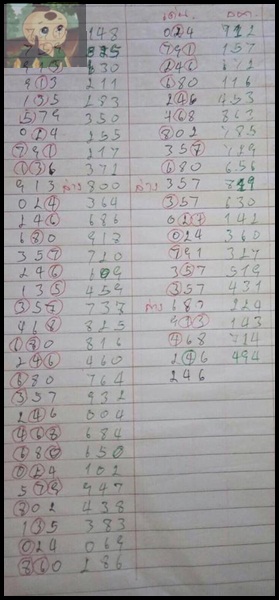 148
825
630
913 211
135 283
579 350
024 255
791 217
136 371
913 ล่าง 800
024 364
246 686
680 913
357 720
246 609
135 459
357 733
468 825
180 816
246 460
680 764
357 932
246 004
468 684
680 650
024 102
579 947
802 438
135 383
024 069
860 286
เด่น ออก
024 912
791 157
246 672
680 116
246 453
468 863
802 785
357 729
680 656
ล่าง 357 849
357 630
027 142
024 360
791 327
357 519
357 431
ล่าง 687 224
933 143
468 714
246 494
246